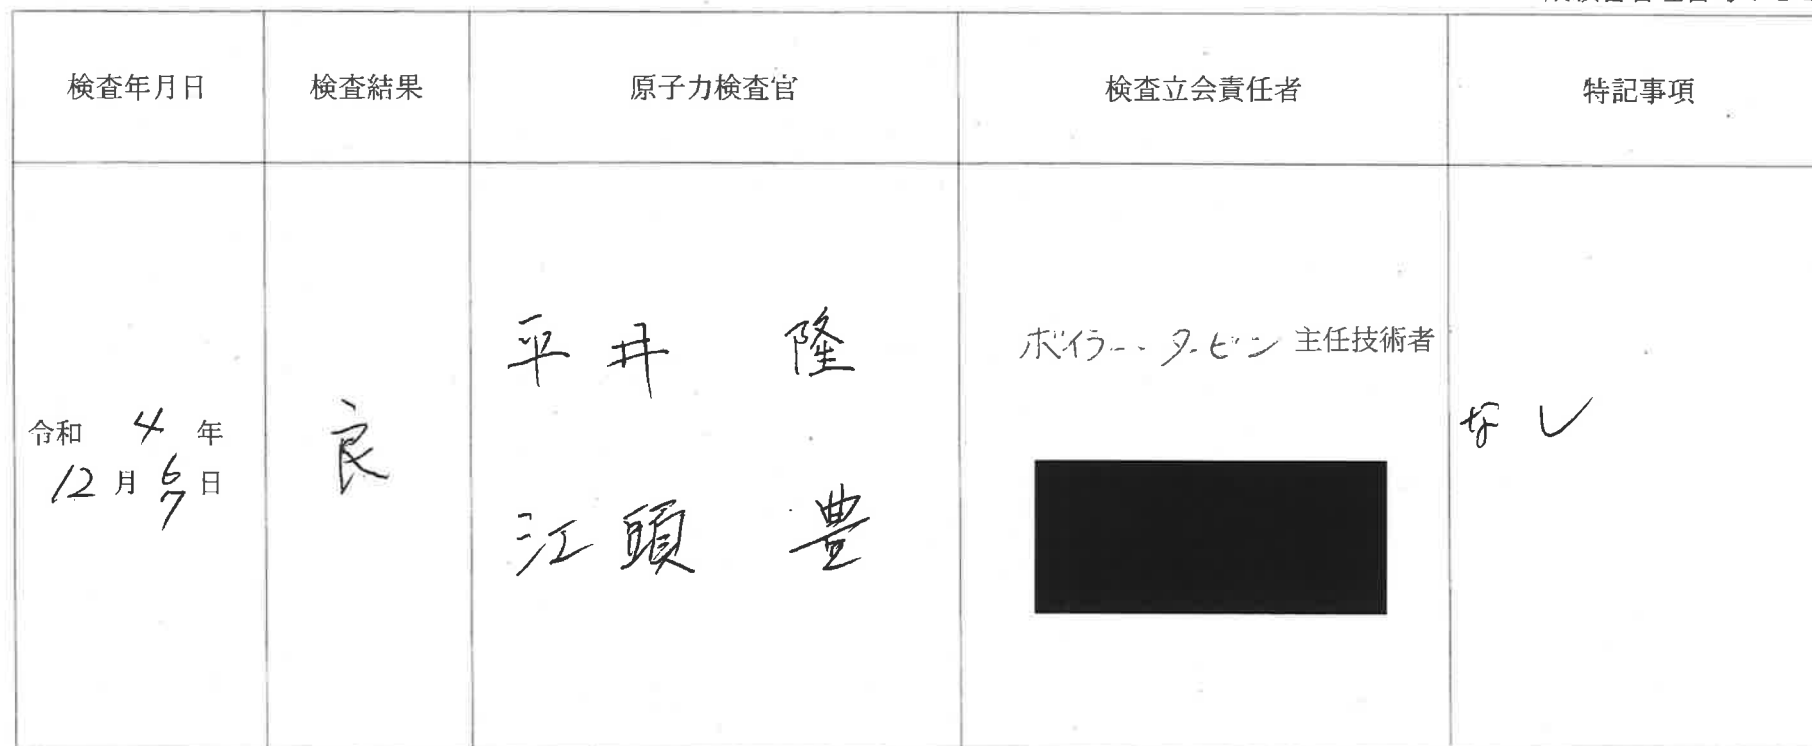 検査年月日
検査結果
原子力検査官
検査立会責任者
特記事項
令和 4 年
12月 6 日
7
良
平井 隆
江頭 豊
ボイラー・タービン 主任技術者
なし